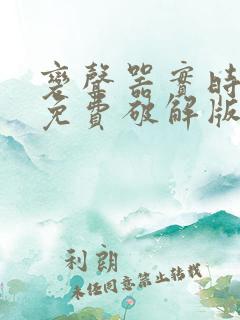 變聲器實時
免費破解版
利朗
未經同意禁止轉載